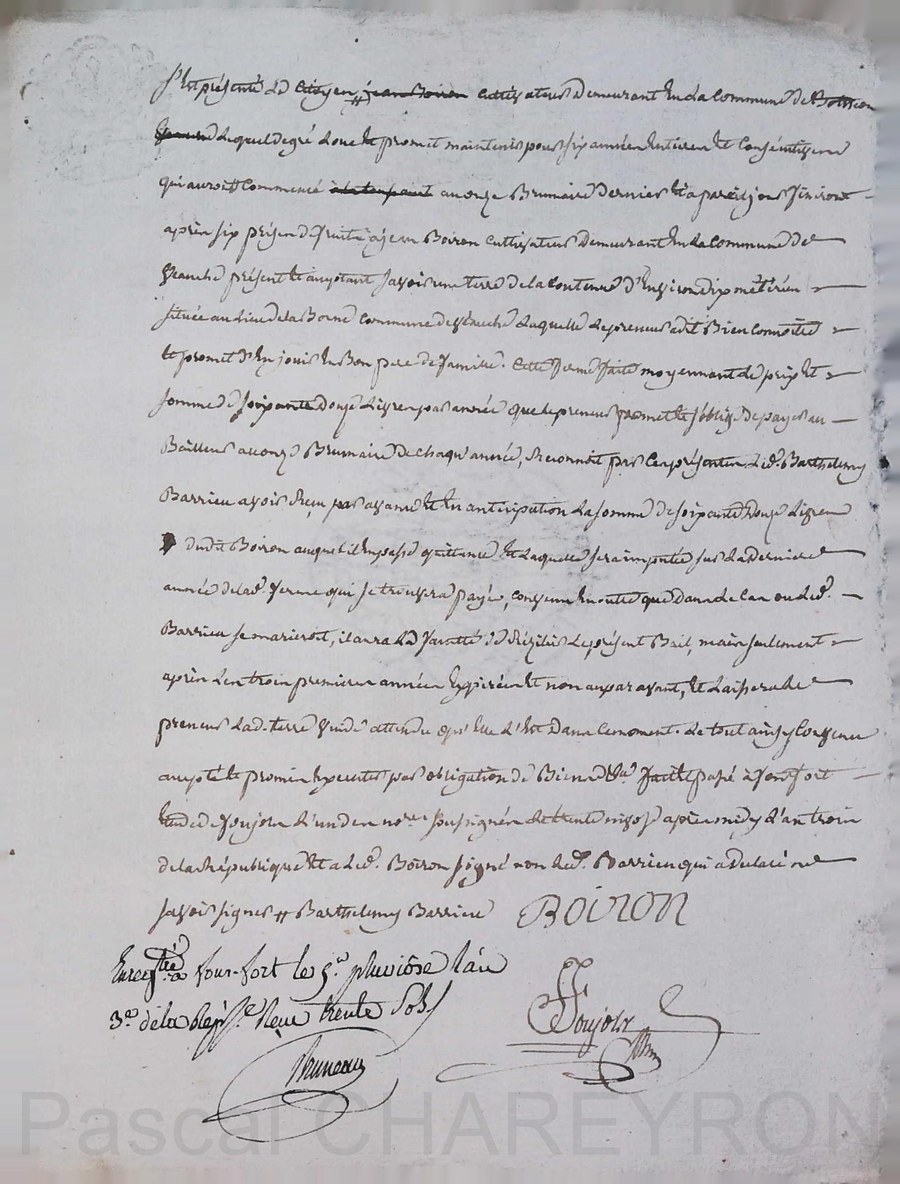 S'est présenté Le Citoyen # jean Boiron Cultivateur Demeurant En La Commune de
Lequel de gré Loue Et promet maintenir pour six années Entieres Et Conséqutives
qui auront Commencé a le tenpoint au onze Brumaire Dernier Et a pareil jour finiront
après six prises de fruits a jean Boiron Cultivateur Demeurant En La Commune de
présent Et acceptant savoir une terre de la Contenue D'Environ dix métérées
située au Lieu de la Borne Commune de Laquelle Le preneur a dit Bien Connoitre
Et promet D'En jouir En Bon pere De famille. Cette ferme faite moyennant Le prix Et
somme de soixante Douze Livres par année que le preneur promet Et s'oblige De payer au
Bailleur au onze Brumaire De Chaqu'année, Reconnoit par Ces présentes Led. Barthelemy
Barrieu avoir Reçu par avance Et En anticipation La somme De soixante Douze Livres
dudit Boiron auquel il En passe quittance Et Laquelle sera imputée sur La Derniere
année de lad. ferme qui se trouvera payée, Convenu En outre que Dans le Cas ou Led.
Barrieu se marieroit, il aura La faculté De Rézilier Le présent Bail, mais seulement
après Les trois premieres années Expirées Et non auparavant, Et Laissera Le
preneur Lad. terre vuide attendu qu'Elle L'Est Dans Ce moment. Le tout ainsy Convenu
accepté Et promis Executer par obligation De Biens fait Et passé a fonsfort
Etude De foujols L'un des nores soussignés Le trente nivose après midy L'an trois
de la République Et a Led. Boiron signé non Led. Barrieu qui a Déclaré ne
savoir signer # Barthelemy Barrieu BOIRON
Enregtré a fons-fort le 5e pluviôse l'an
3e de la Répque Reçu trente Sols
foujols nre
Bruneau
Pascal CHAREYRON